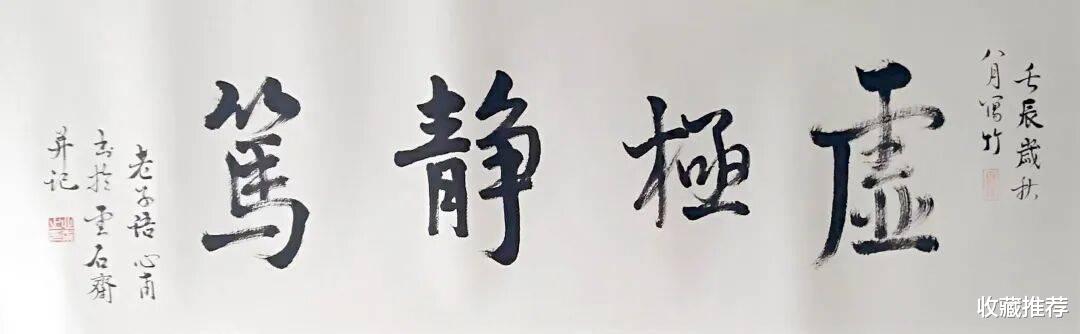 壬辰歲秋
八月寫竹
虛極静篤
老子語 心甫
书於雲石齋
并记
收藏推荐